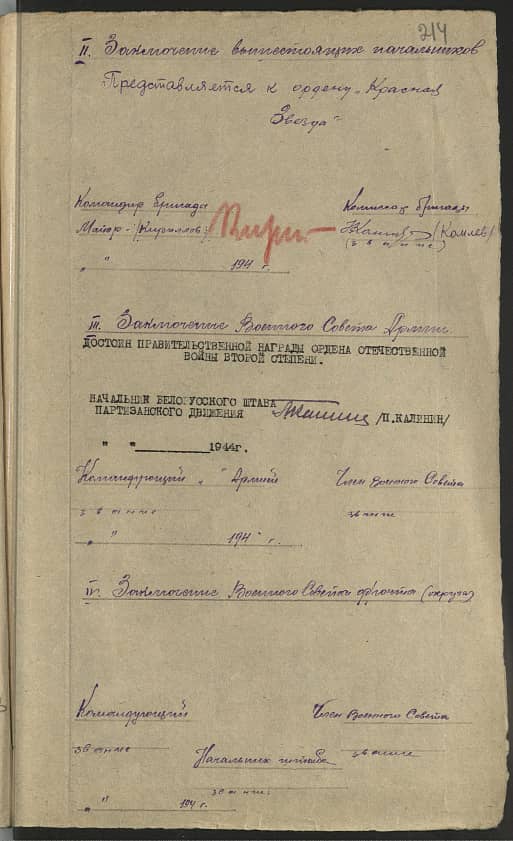 214
II. Заключение вышестоящих начальников
Представляется к ордену „Красная
Звезда"
Командир бригады
Комиссар бригады
Майор - /Кириллов/
/Комлев/
(звание)
„ " 194 г.
III. Заключение Военного Совета Армии
ДОСТОИН ПРАВИТЕЛЬСТВЕННОЙ НАГРАДЫ ОРДЕНА ОТЕЧЕСТВЕННОЙ
ВОЙНЫ ВТОРОЙ СТЕПЕНИ.
НАЧАЛЬНИК БЕЛОРУССКОГО ШТАБА
ПАРТИЗАНСКОГО ДВИЖЕНИЯ /П.КАЛИНИН/
" " 1944г.
Командующий „ " Армией
Член Военного Совета
звание
звание
„ " 194 г.
IV. Заключение Военного Совета фронта (округа)
Командующий
Член Военного Совета
звание
звание
Начальник штаба
звание
„ " 194 г.